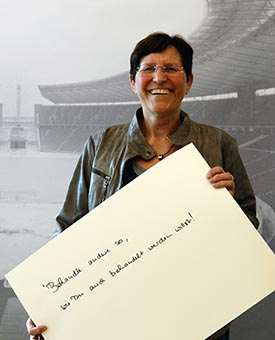 "Behandle andere so,
wie Du auch behandelt werden willst!